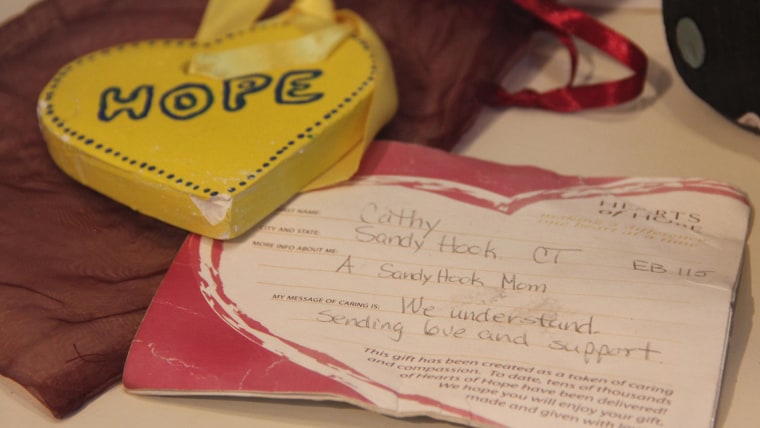 HOPE
HEARTS
of HOPE
making a difference
one heart at a time
FIRST NAME: Cathy
CITY AND STATE: Sandy Hook CT
EB 115
MORE INFO ABOUT ME: A Sandy Hook Mom
MY MESSAGE OF CARING IS: We understand.
Sending love and support.
This gift has been created as a token of caring
and compassion. To date, tens of thousands
of Hearts of Hope have been delivered!
We hope you will enjoy your gift,
made and given with